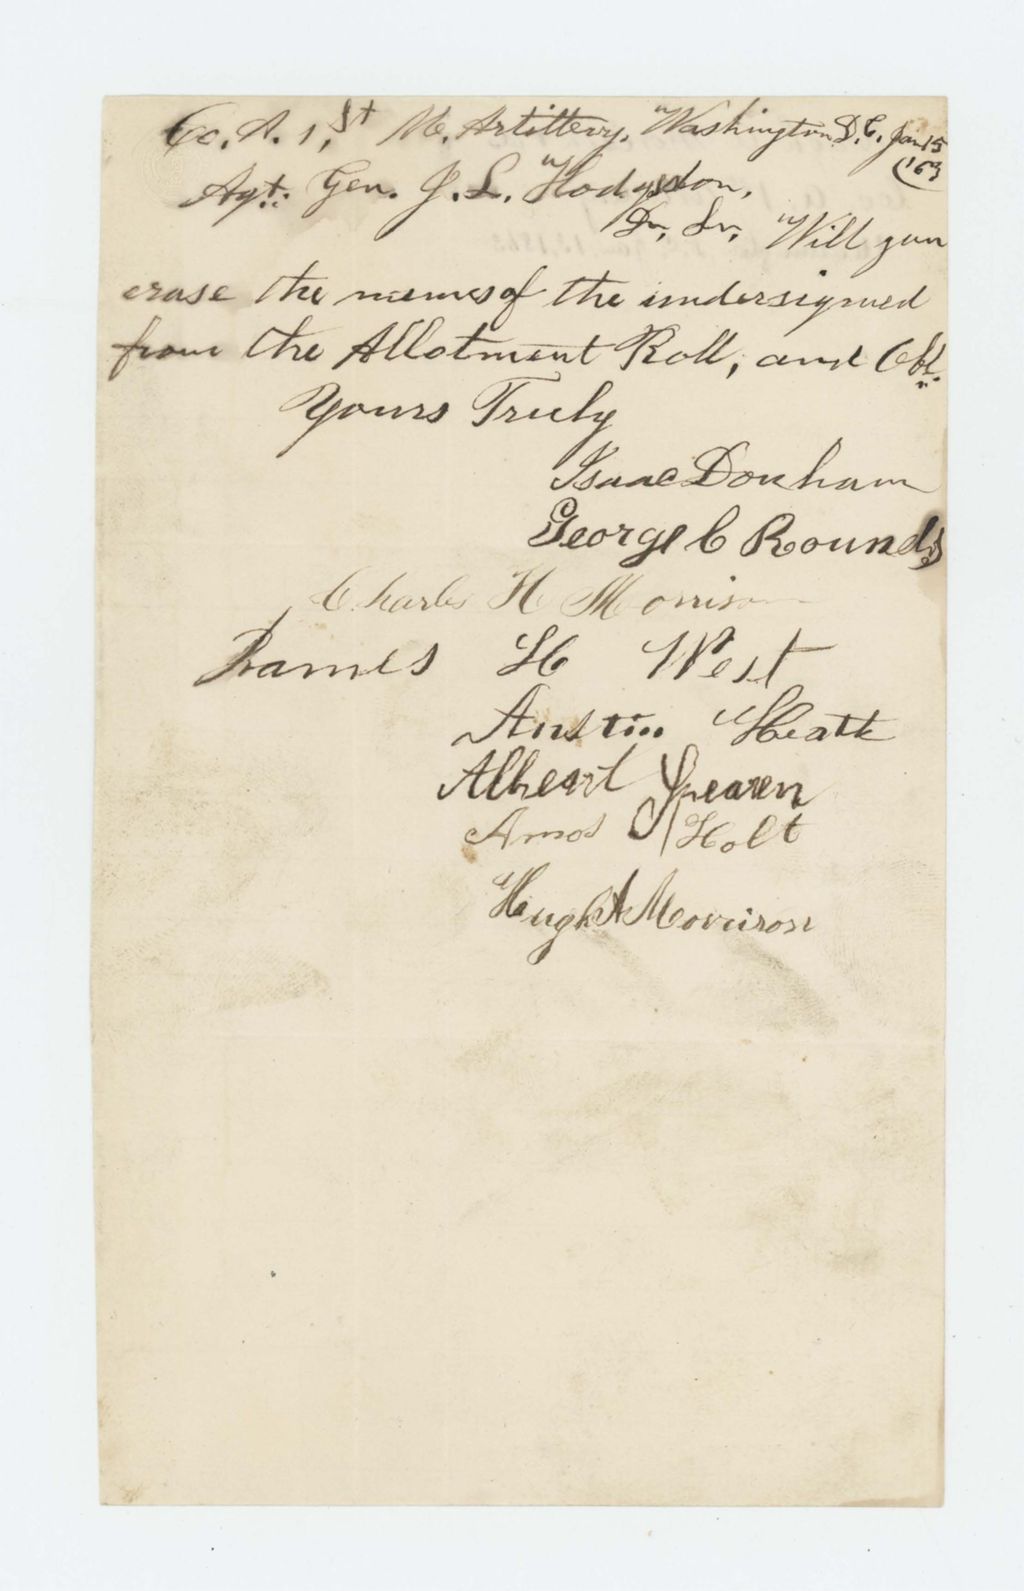 Co. A. 1, St Me. Artillery, Washington D.C. Jan 15
/63
Agt. Gen. J. L. Hodgsdon,
Dr. Sr, Will you
erase the names of the undersigned
from the Allotment Roll, and Obl.
Yours Truly
Isaac Donham
George C Rounds
Charles H Morrison
James H West
Austin Heath
Albert Spearen
Amos Holt
Hugh A Morrison